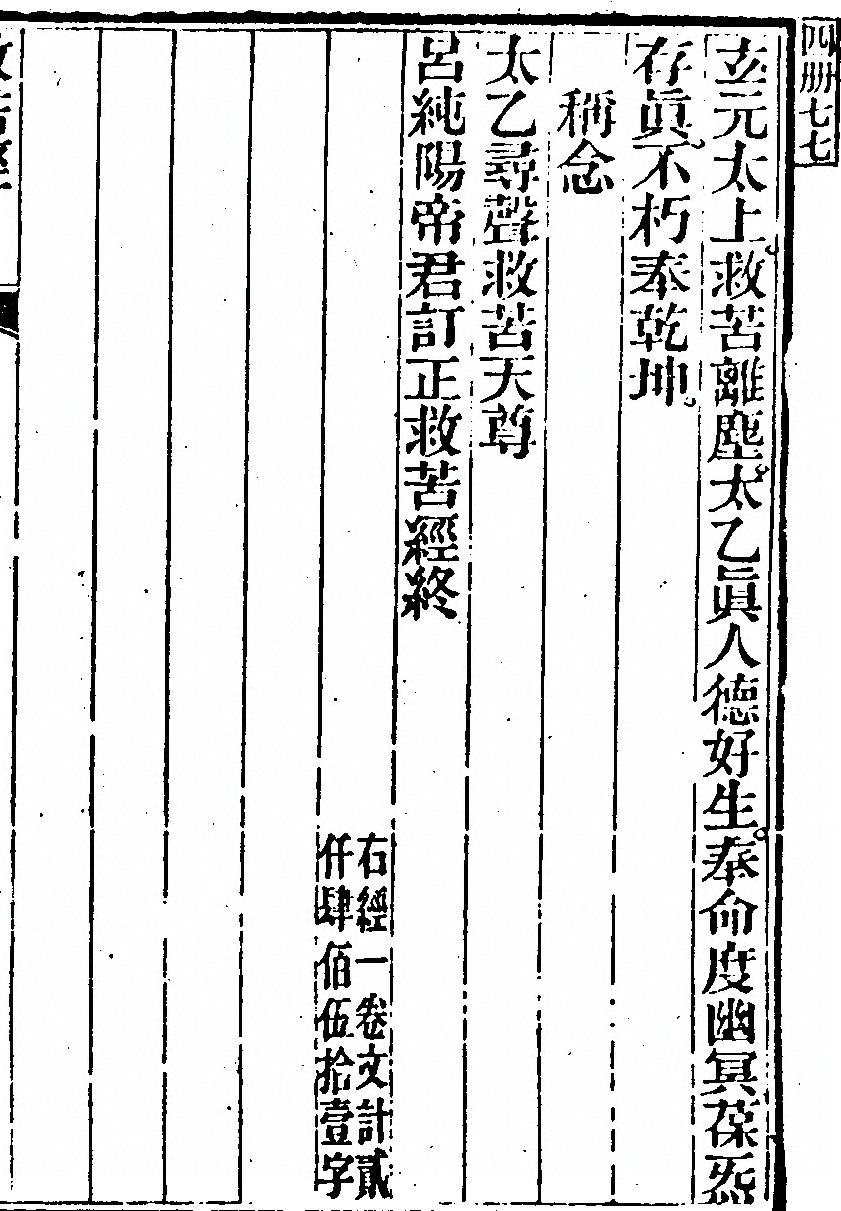 四册七七
玄元太上。救苦離塵。太乙眞人德好生。奉命度幽冥葆炁
存眞。不朽奉乾坤。
稱念
太乙尋聲救苦天尊
呂純陽帝君訂正救苦經終
右經一卷文計貳
仟肆佰伍拾壹字
救苦經